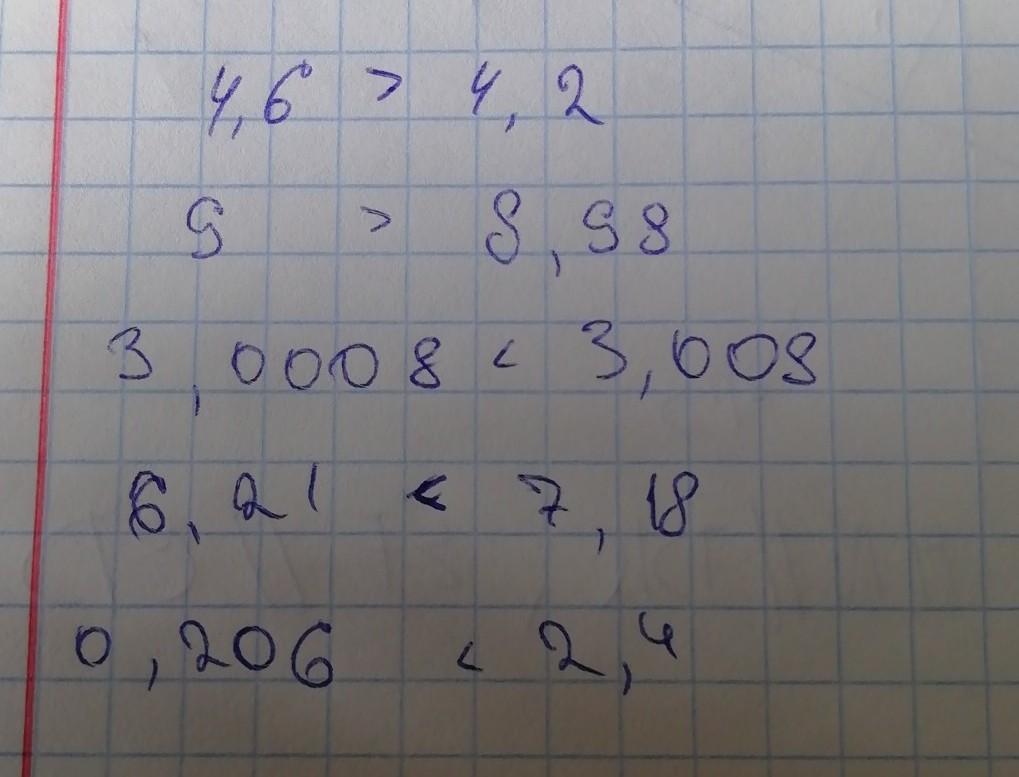 4,6 > 4,2
9 > 8,98
3,0008 < 3,009
6,21 < 7,18
0,206 < 2,4